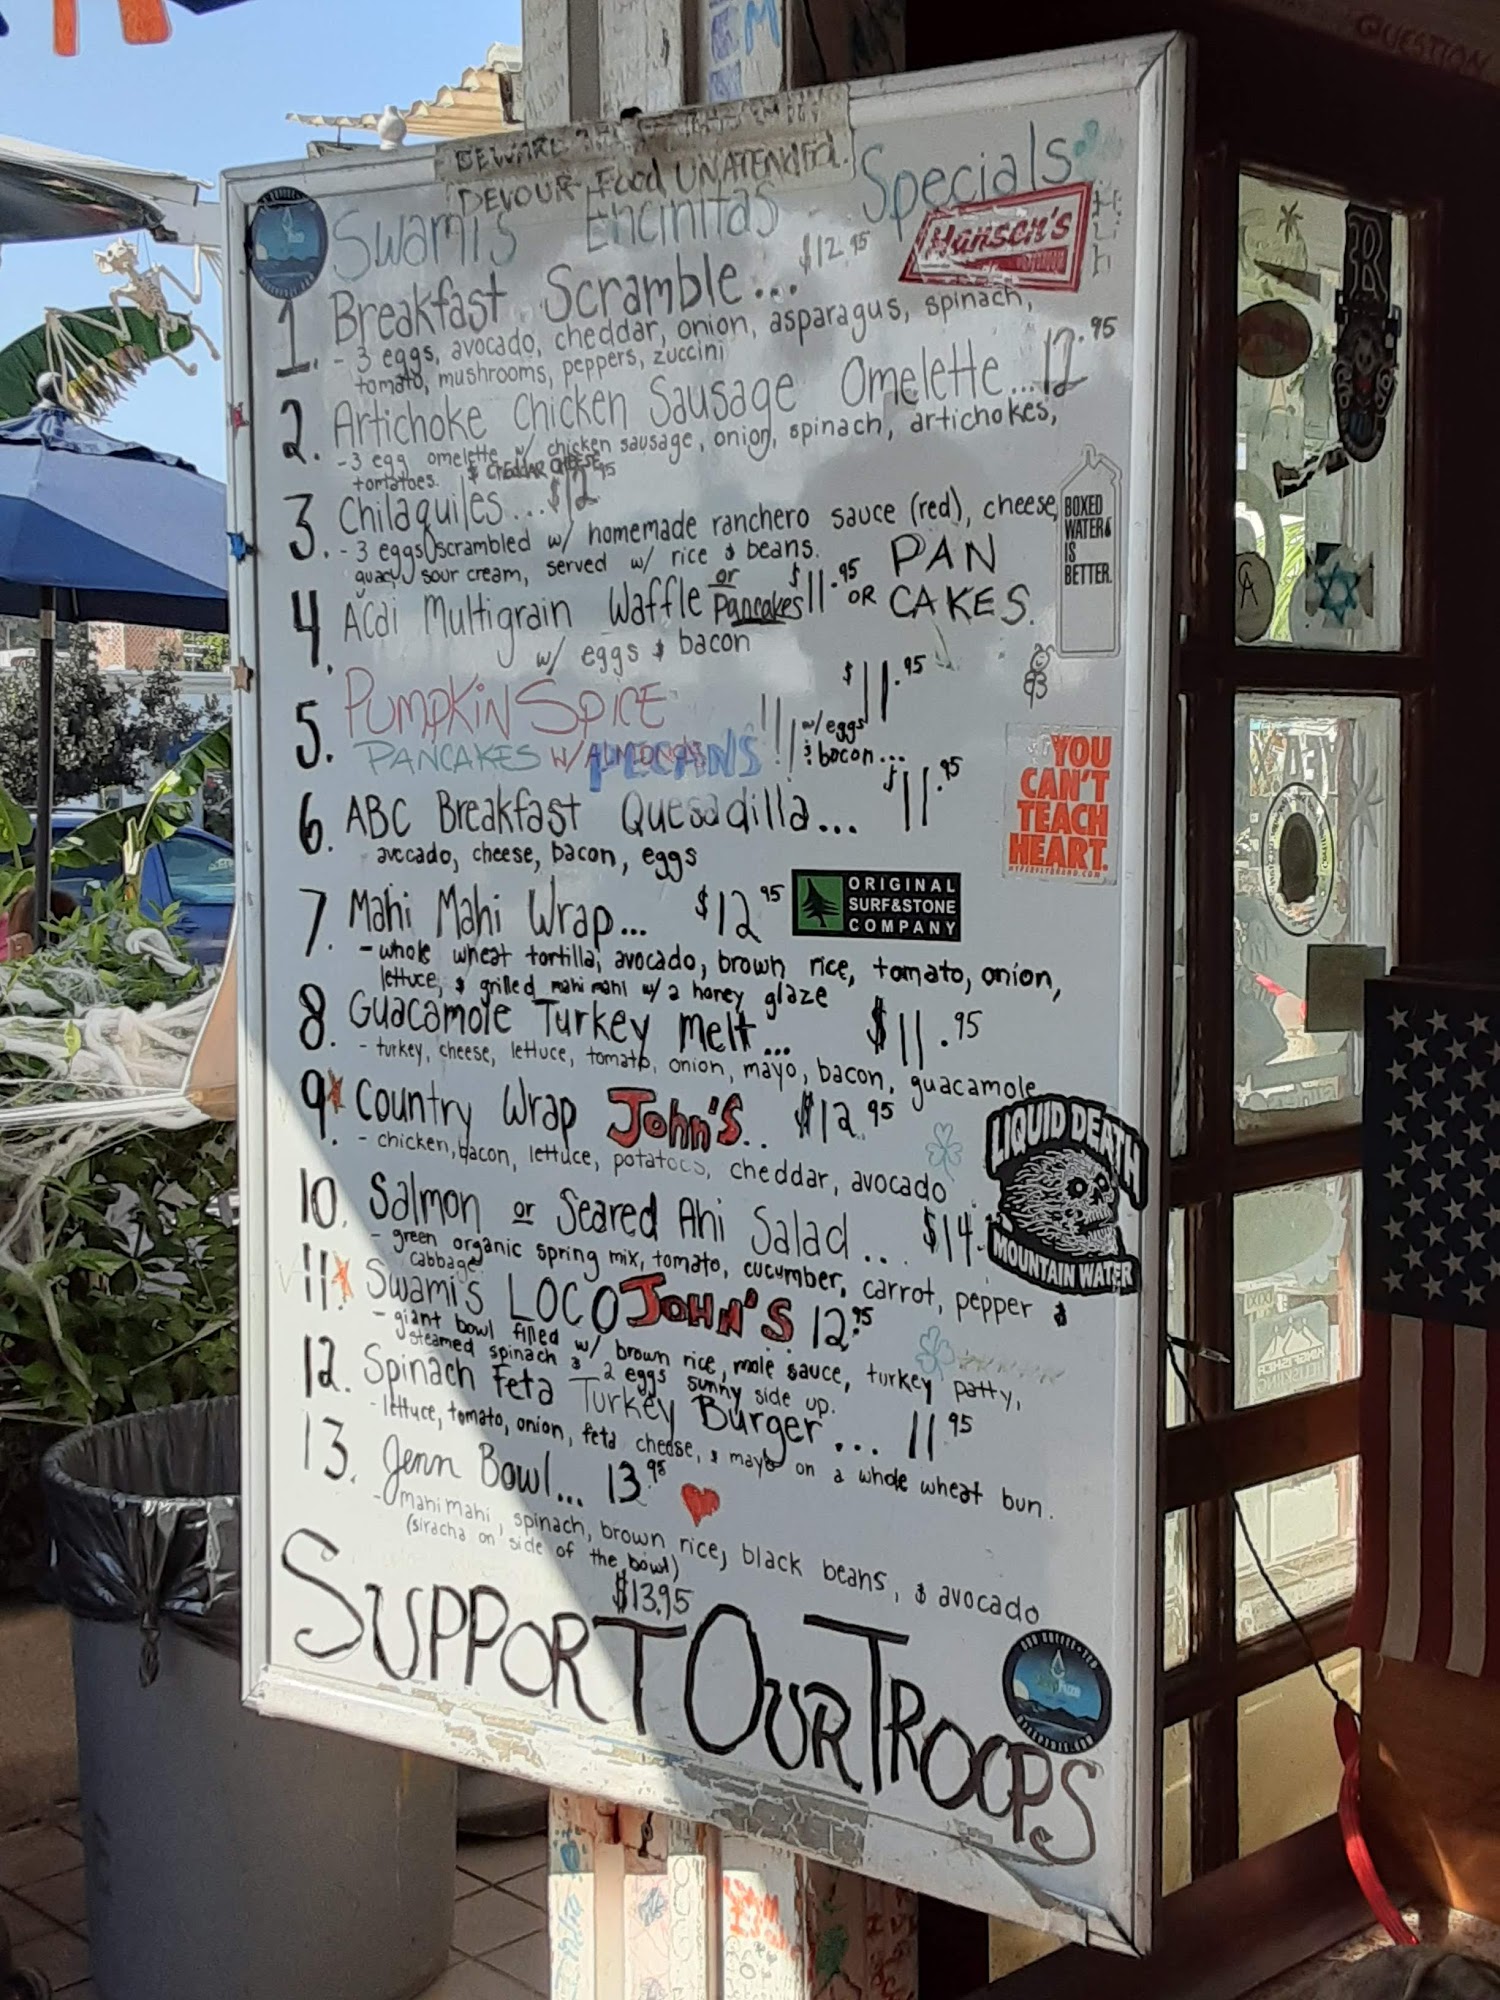 BEWARE
DEVOUR Food UNATENDEd.
Swami's Encinitas Specials
Hansen's
1. Breakfast Scramble... $12.95
- 3 eggs, avocado, cheddar, onion, asparagus, spinach,
tomato, mushrooms, peppers, zuccini
2. Artichoke Chicken Sausage Omelette... 12.95
- 3 egg omelette w/ chicken sausage, onion, spinach, artichokes,
tomatoes. & CHEDDAR CHEESE
3. Chilaquiles... $12.95
- 3 eggs scrambled w/ homemade ranchero sauce (red), cheese,
guac, sour cream, served w/ rice & beans.
BOXED
WATER
IS
BETTER.
4. Acai Multigrain Waffle or Pancakes $11.95 OR PAN
CAKES.
w/ eggs & bacon
5. PUMPKIN SPICE $11.95
PANCAKES W/ PECANS !!! w/ eggs
& bacon...
YOU
CAN'T
TEACH
HEART.
6. ABC Breakfast Quesadilla... $11.95
avocado, cheese, bacon, eggs
7. Mahi Mahi Wrap... $12.95
ORIGINAL
SURF&STONE
COMPANY
- whole wheat tortilla, avocado, brown rice, tomato, onion,
lettuce, & grilled mahi mahi w/ a honey glaze
8. Guacamole Turkey Melt... $11.95
- turkey, cheese, lettuce, tomato, onion, mayo, bacon, guacamole
9. Country Wrap John's.. $12.95
- chicken, bacon, lettuce, potatoes, cheddar, avocado
LIQUID DEATH
MOUNTAIN WATER
10. Salmon or Seared Ahi Salad... $14.
- green organic spring mix, tomato, cucumber, carrot, pepper &
cabbage
11. Swami's LOCO JOHN'S 12.95
- giant bowl filled w/ brown rice, mole sauce, turkey patty,
steamed spinach & 2 eggs sunny side up.
12. Spinach Feta Turkey Burger... 11.95
- lettuce, tomato, onion, feta cheese, & mayo on a whole wheat bun.
13. Jenn Bowl... 13.95
- mahi mahi, spinach, brown rice, black beans, & avocado
(siracha on side of the bowl)
$13.95
SUPPORT OUR TROOPS
QUESTION